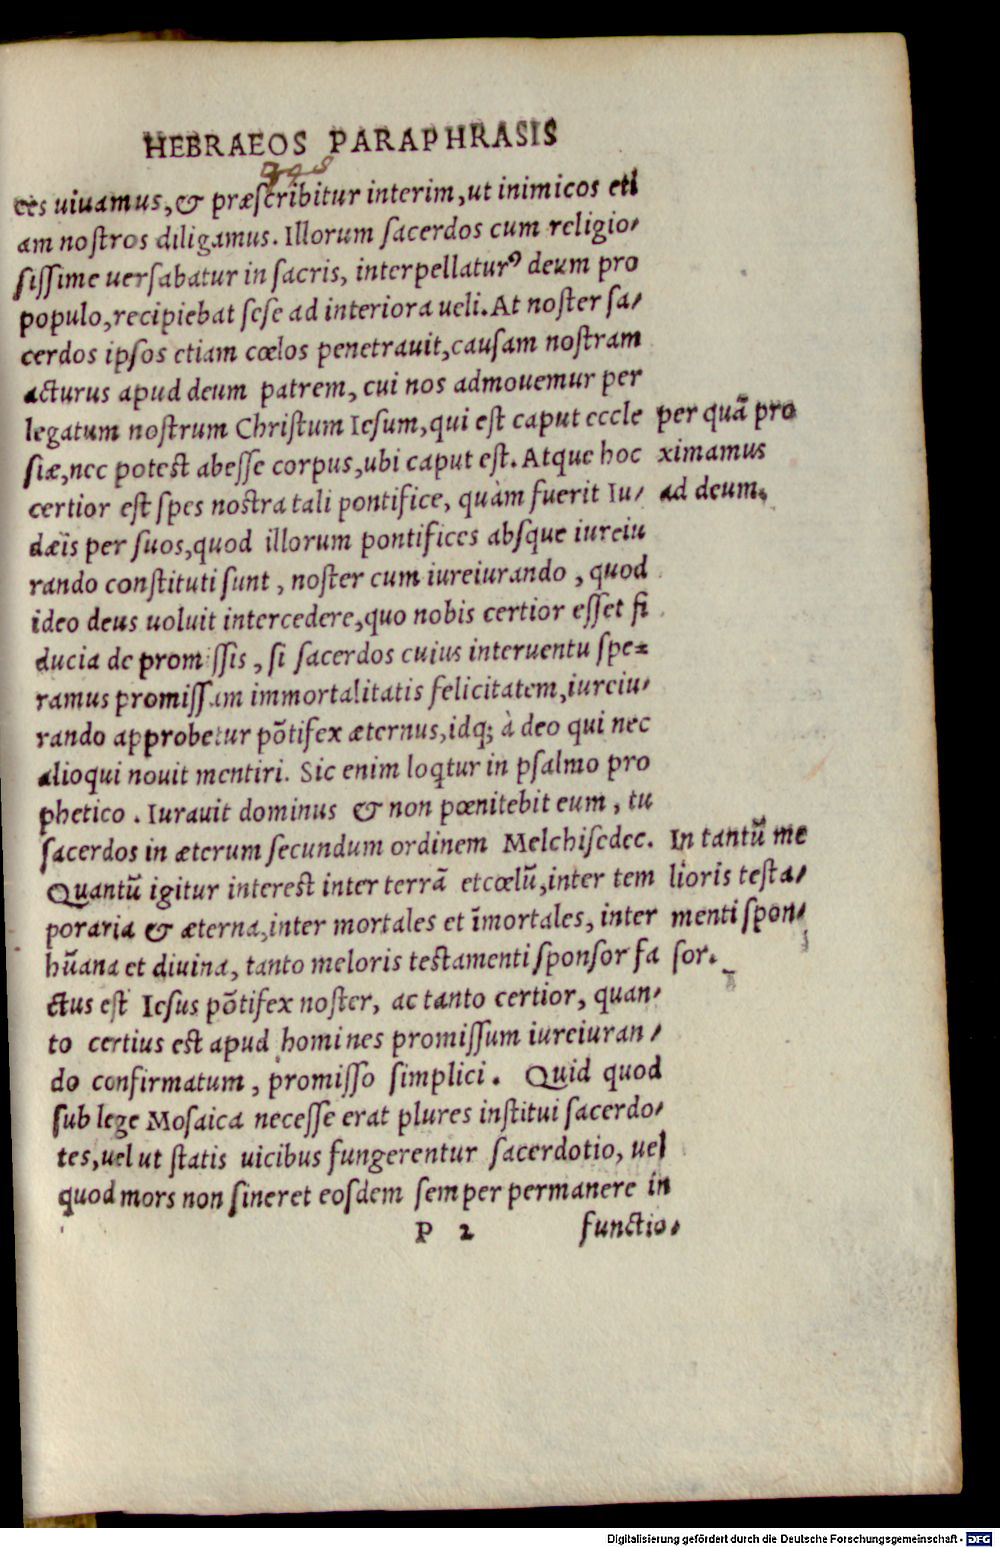 HEBRAEOS PARAPHRASIS
ces uiuamus, & præſcribitur interim, ut inimicos eti
am noſtros diligamus. Illorum ſacerdos cum religio⸗
ſiſſime uerſabatur in ſacris, interpellaturꝰ deum pro
populo, recipiebat ſeſe ad interiora ueli. At noſter ſa⸗
cerdos ipſos etiam cœlos penetrauit, cauſam noſtram
acturus apud deum patrem, cui nos admouemur per
legatum noſtrum Chriſtum Ieſum, qui eſt caput eccle
ſiæ, nec poteſt abeſſe corpus, ubi caput eſt. Atque hoc
certior eſt ſpes noſtra tali pontifice, quàm fuerit Iu⸗
dæis per ſuos, quod illorum pontifices abſque iureiu
rando conſtituti ſunt, noſter cum iureiurando, quod
ideo deus uoluit intercedere, quo nobis certior eſſet fi
ducia de promiſſis, ſi ſacerdos cuius interuentu ſpe⸗
ramus promiſſam immortalitatis felicitatem, iureiu⸗
rando approbetur põtifex æternus, idq; à deo qui nec
alioqui nouit mentiri. Sic enim loqtur in pſalmo pro
phetico. Iurauit dominus & non pœnitebit eum, tu
ſacerdos in æterum ſecundum ordinem Melchiſedec.
Quantũ igitur intereſt inter terrã et cœlũ, inter tem
poraria & æterna, inter mortales et ĩmortales, inter
hũana et diuina, tanto meloris teſtamenti ſponſor fa
ctus eſt Ieſus põtifex noſter, ac tanto certior, quan⸗
to certius eſt apud homines promiſſum iureiuran⸗
do confirmatum, promiſſo ſimplici. Quid quod
ſub lege Moſaica neceſſe erat plures inſtitui ſacerdo⸗
tes, uel ut ſtatis uicibus fungerentur ſacerdotio, uel
quod mors non ſineret eoſdem ſemper permanere in
P 2 functio⸗
per quã pro
ximamus
ad deum.
In tantũ me
lioris teſta⸗
menti ſpon⸗
ſor.
Digitalisierung gefördert durch die Deutsche Forschungsgemeinschaft - DFG